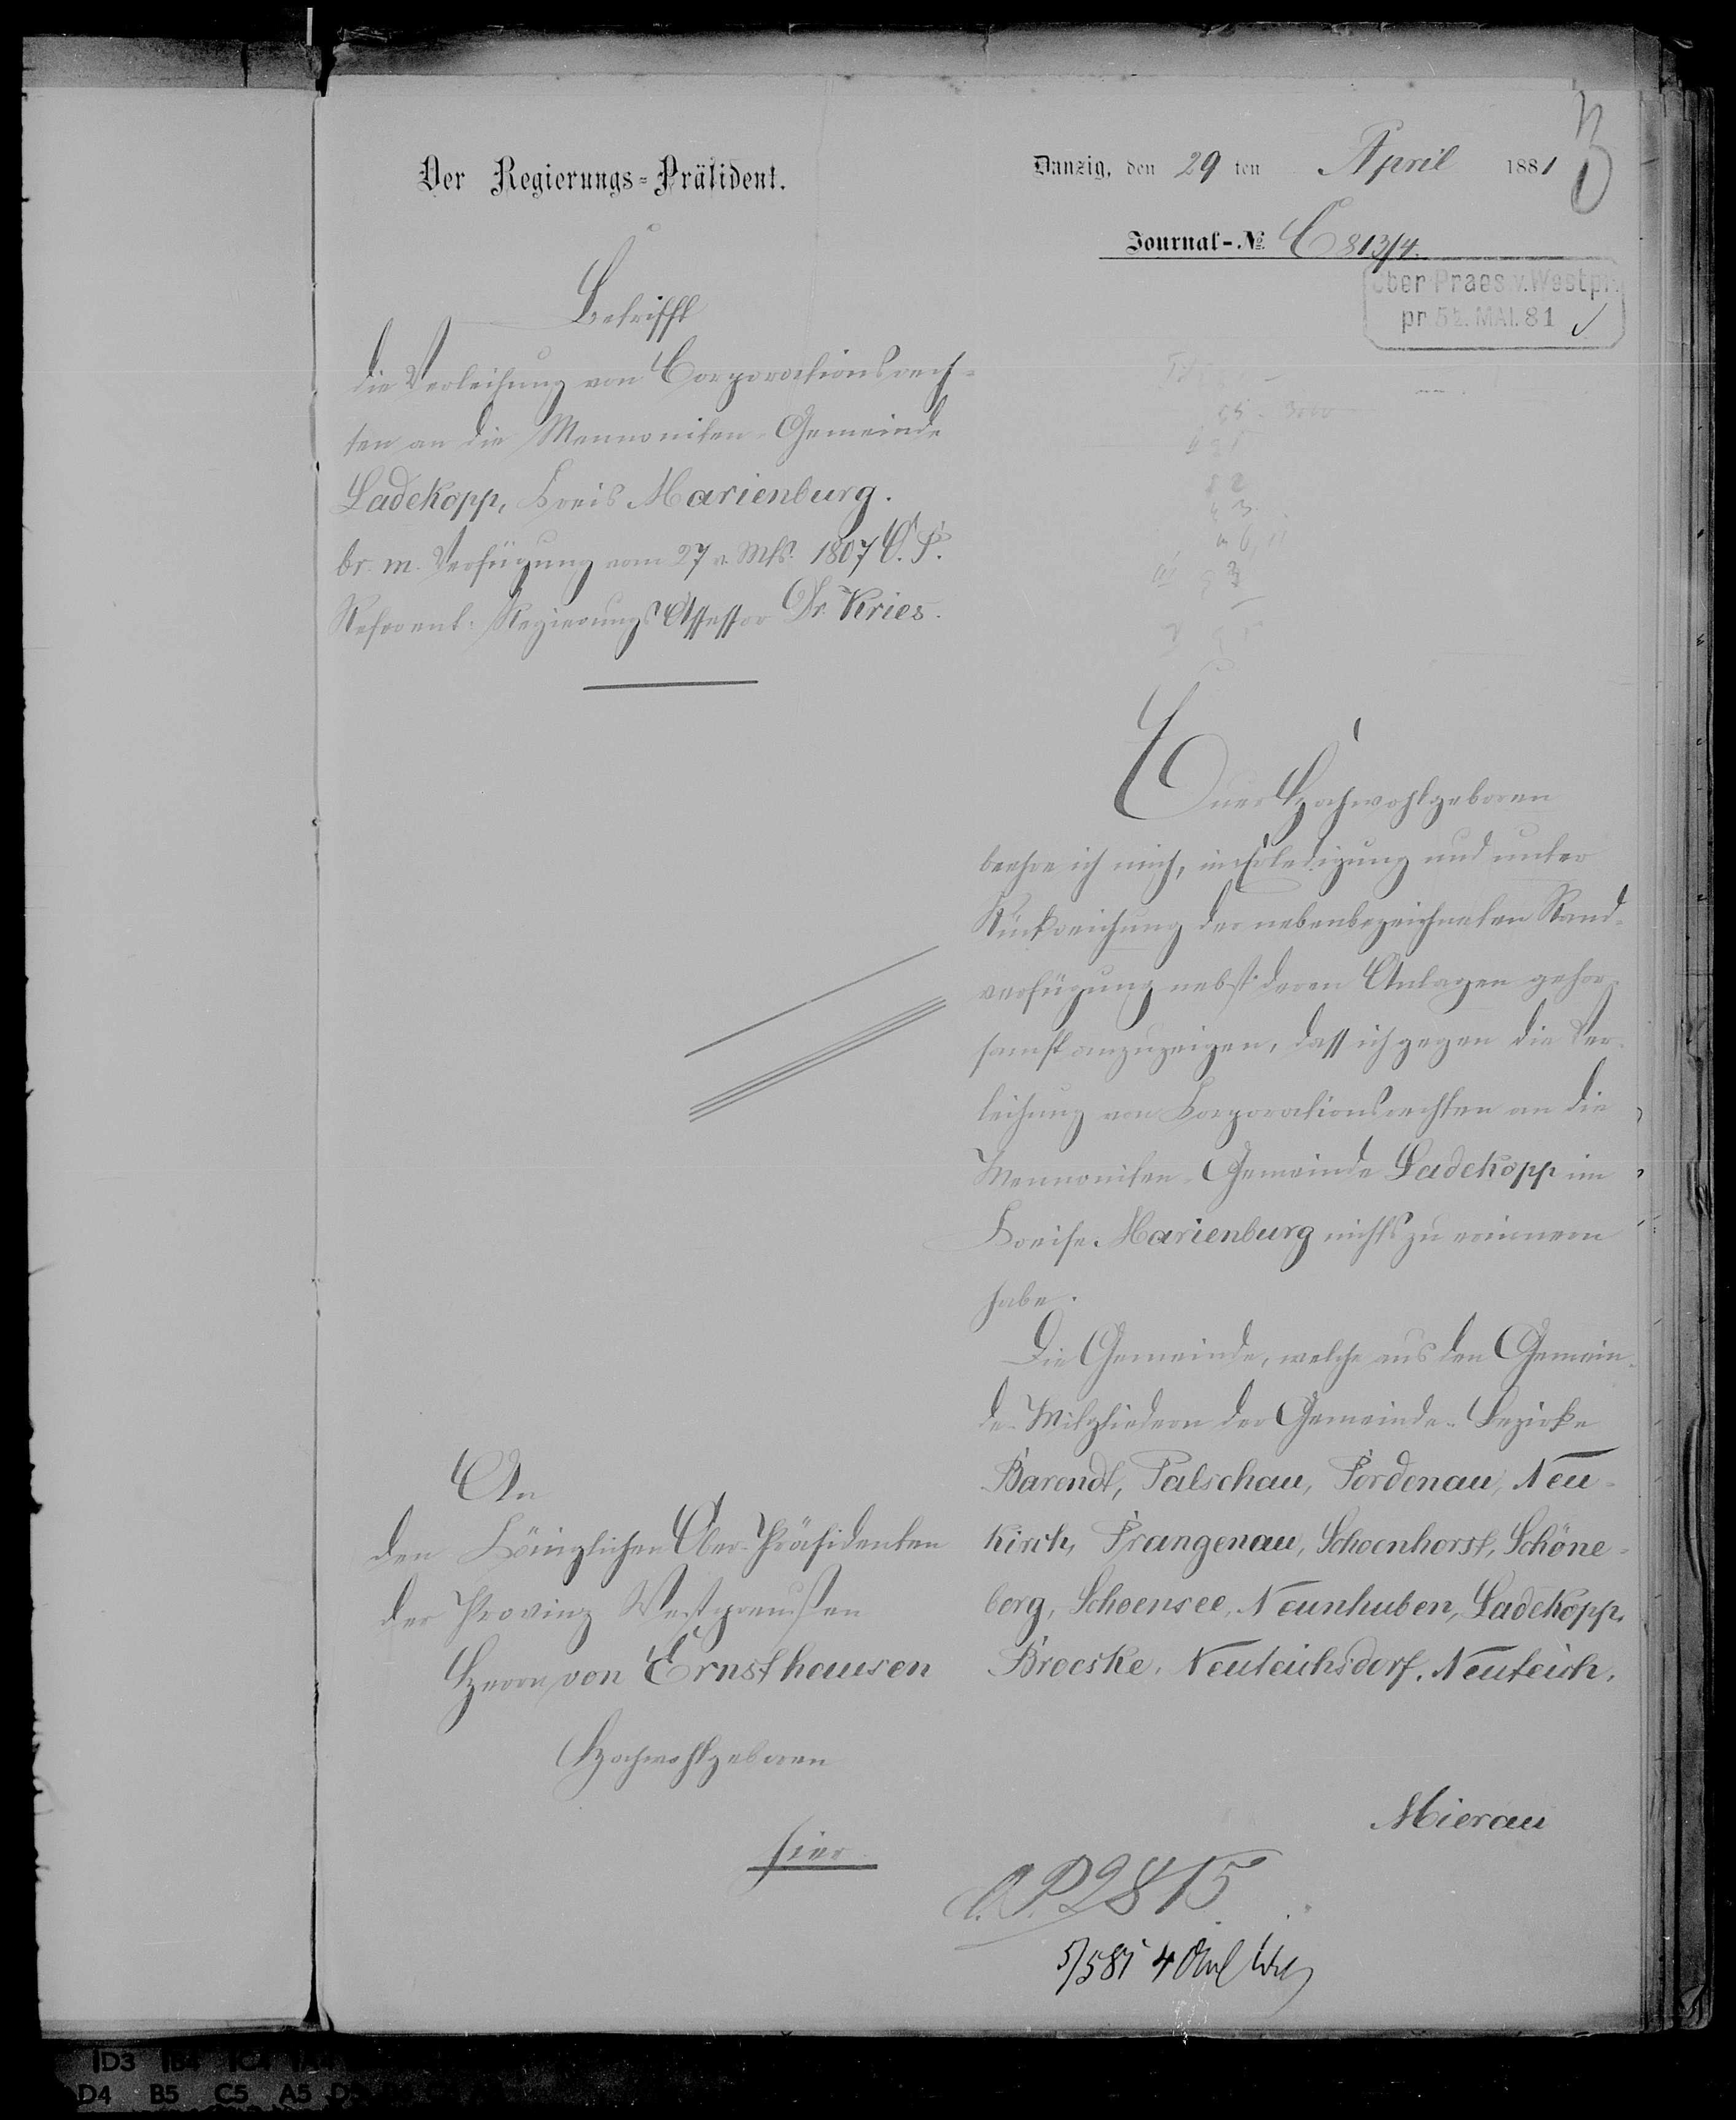 Der Regierungs-Präsident.
Danzig, den 29 ten April 1881
Journal-No. C 813/4.
Ober-Praes. v. Westpr.
pr. 5. MAI. 81
Betrifft
die Verleihung von Corporationsrech-
ten an die Mennoniten-Gemeinde
Ladekopp, Kreis Marienburg.
br. m. Verfügung vom 27 v. Mts. 1807 O. P.
Referent: Regierungs Assessor Dr. Kries.
Euer Hochwohlgeboren
beehre ich mich, in Erledigung und unter
Rückreichung der nebenbezeichneten Rand-
verfügung nebst deren Anlagen gehor-
samst anzuzeigen, dass ich gegen die Ver-
leihung von Corporationsrechten an die
Mennoniten-Gemeinde Ladekopp im
Kreise Marienburg nichts zu erinnern
habe.
Die Gemeinde, welche aus den Gemein-
de-Mitgliedern der Gemeinde-Bezirke
Barendt, Palschau, Pordenau, Neu-
kirch, Prangenau, Schoenhorst, Schöne-
berg, Schoensee, Neunhuben, Ladekopp,
Broeske, Neuteichsdorf, Neuteich,
Mierau
An
den Königlichen Ober-Präsidenten
der Provinz Westpreußen
Herrn von Ernsthausen
Hochwohlgeboren
hier.
O. P. 2815
5/5 81 4